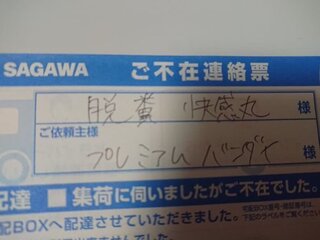 SAGAWA ご不在連絡票
脱糞 快感丸 様
ご依頼主様
プレミアムバンダイ 様
配達 ■ 集荷に伺いましたがご不在でした。
配BOXへ配達させていただきました。